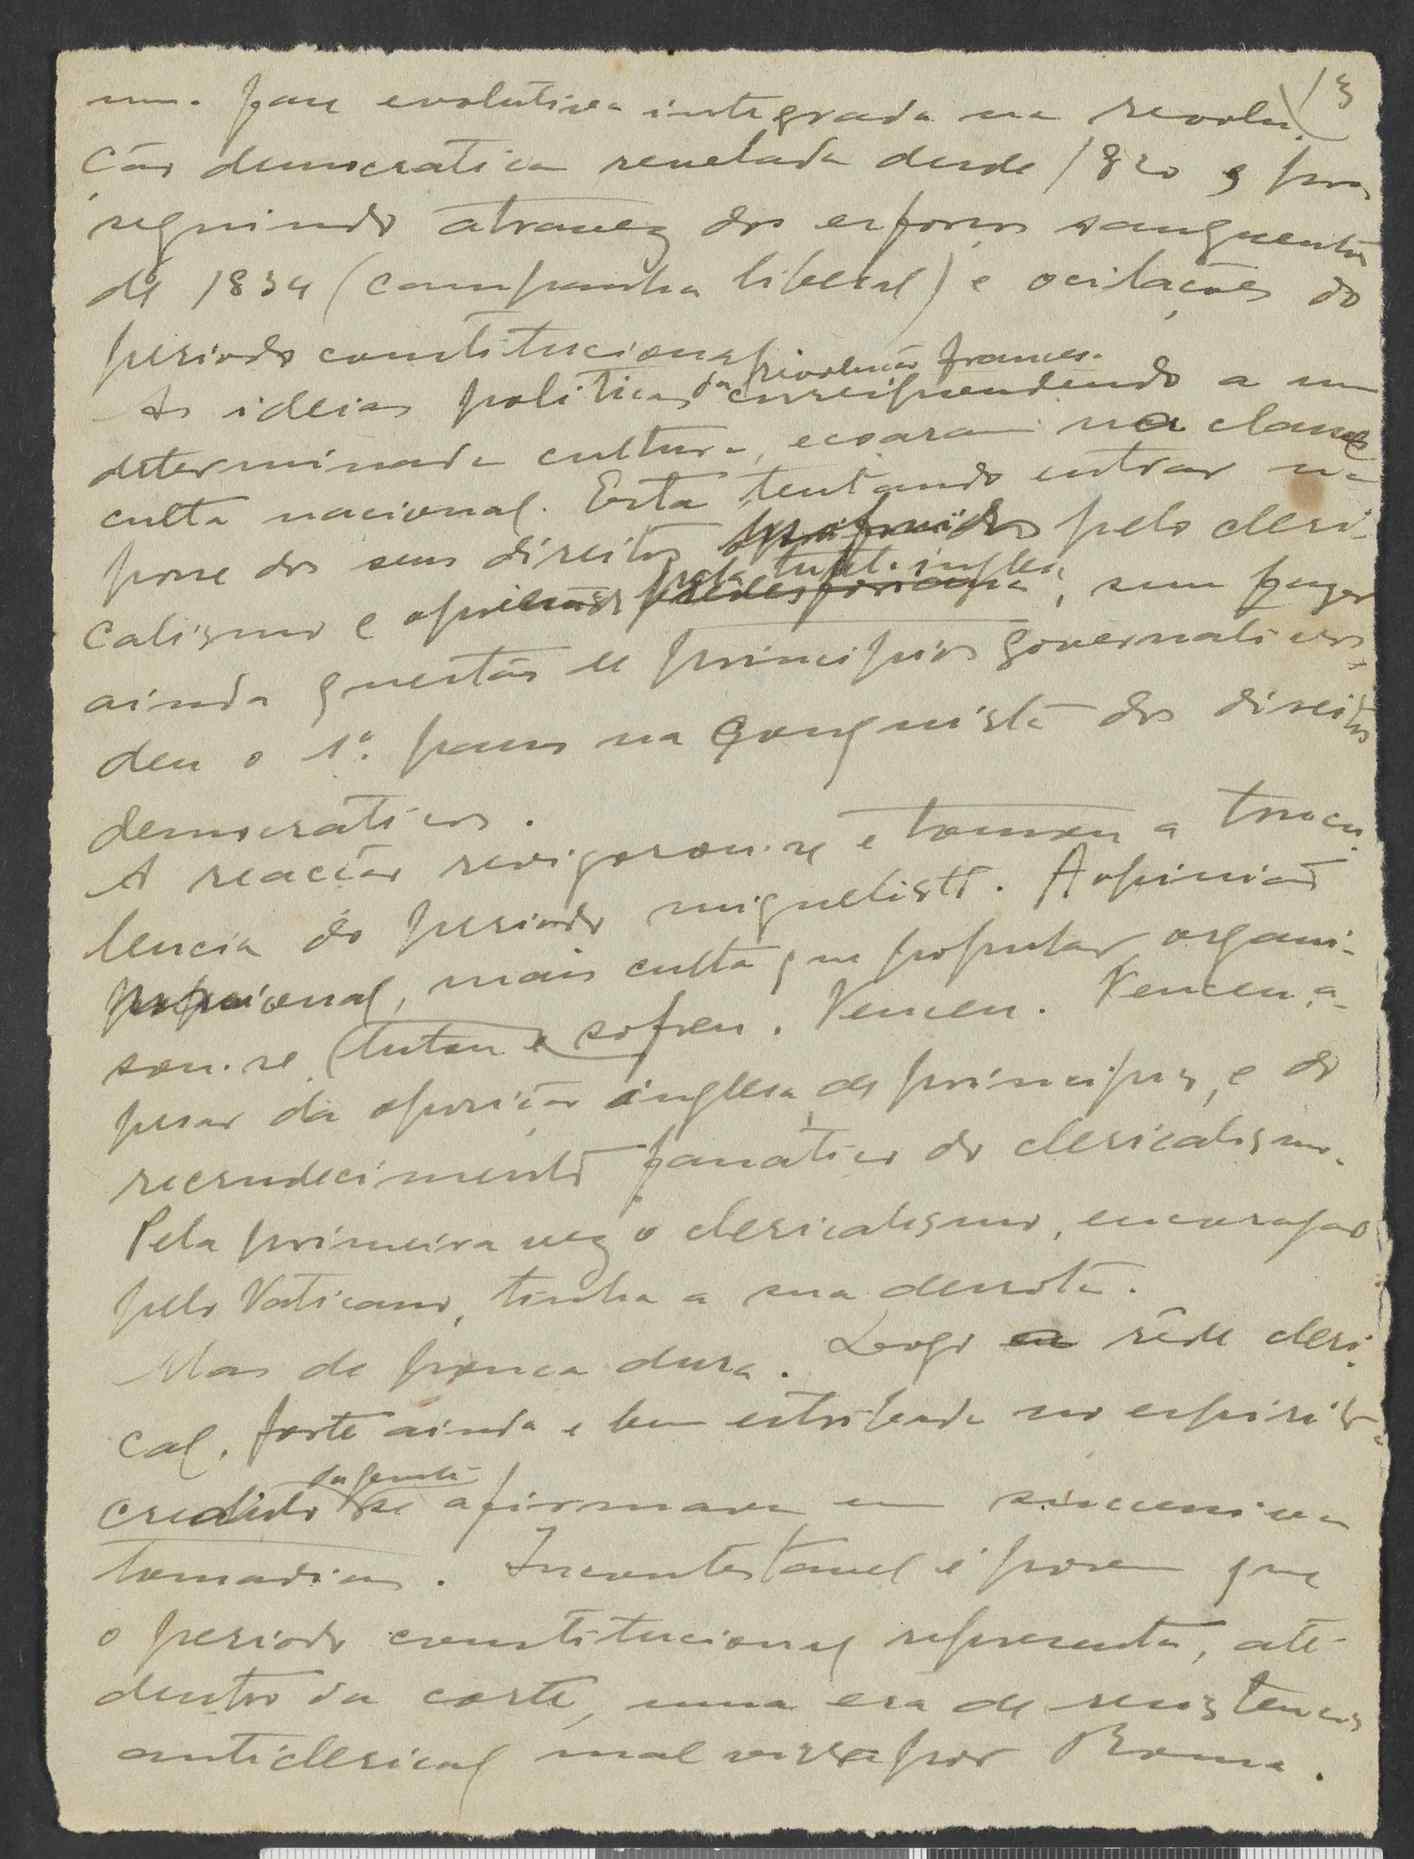 13
uma fase evolutiva integrada na revolu-
ção democratica revelada desde 1820 e pros
seguindo atravez dos esforços sanguentos
de 1834 (campanha liberal) e oscilações do
periodo constitucional
da revolução francesa
As ideias politicas correspondendo a uma
determinada cultura, ecoaram na classe
culta nacional. Esta tentando entrar na
posse dos seus direitos pelo cleri-
pela tutela inglesa
calismo e oprimidos, sem fazer
ainda questão de principios governativos,
deu o 1º. passo na conquista dos direitos
democraticos.
A reacção revigorou-se e tomou a trucu-
lencia do periodo miguelista. A opinião
nacional, mais culta que popular, organi-
sou-se lutou e sofreu. Venceu. Venceu a-
pesar da oposição inglesa de principios, e do
recrudecimento fanatico do clericalismo.
Pela primeira vez o clericalismo, encorajado
pelo Vaticano, tinha a sua derrota.
Mas de pouca dura. Logo a rêde cleri-
cal, forte ainda e bem estribada no espirito
da gente
credulo se afirmava em sucessivas
tomadias. Incontestavel é porem que
o periodo constitucional representa, até
dentro da corte, uma era de resistencia
anticlerical mal vista por Roma.